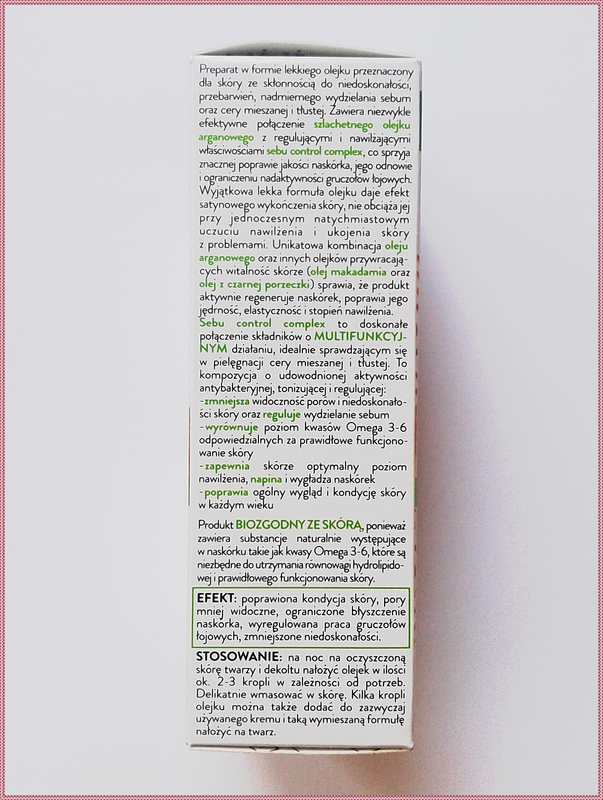 Preparat w formie lekkiego olejku przeznaczony
dla skóry ze skłonnością do niedoskonałości,
przebarwień, nadmiernego wydzielania sebum
oraz cery mieszanej i tłustej. Zawiera niezwykle
efektywne połączenie szlachetnego olejku
arganowego z regulującymi i nawilżającymi
właściwościami sebu control complex, co sprzyja
znacznej poprawie jakości naskórka, jego odnowie
i ograniczeniu nadaktywności gruczołów łojowych.
Wyjątkowa lekka formuła olejku daje efekt
satynowego wykończenia skóry, nie obciąża jej
przy jednoczesnym natychmiastowym
uczuciu nawilżenia i ukojenia skóry
z problemami. Unikatowa kombinacja oleju
arganowego oraz innych olejków przywracają-
cych witalność skórze (olej makadamia oraz
olej z czarnej porzeczki) sprawia, że produkt
aktywnie regeneruje naskórek, poprawia jego
jędrność, elastyczność i stopień nawilżenia.
Sebu control complex to doskonałe
połączenie składników o MULTIFUNKCYJ-
NYM działaniu, idealnie sprawdzającym się
w pielęgnacji cery mieszanej i tłustej. To
kompozycja o udowodnionej aktywności
antybakteryjnej, tonizującej i regulującej:
-zmniejsza widoczność porów i niedoskonało-
ści skóry oraz reguluje wydzielanie sebum
-wyrównuje poziom kwasów Omega 3-6
odpowiedzialnych za prawidłowe funkcjono-
wanie skóry
-zapewnia skórze optymalny poziom
nawilżenia, napina i wygładza naskórek
-poprawia ogólny wygląd i kondycję skóry
w każdym wieku
Produkt BIOZGODNY ZE SKÓRĄ, ponieważ
zawiera substancje naturalnie występujące
w naskórku takie jak kwasy Omega 3-6, które są
niezbędne do utrzymania równowagi hydrolipido-
wej i prawidłowego funkcjonowania skóry.
EFEKT: poprawiona kondycja skóry, pory
mniej widoczne, ograniczone błyszczenie
naskórka, wyregulowana praca gruczołów
łojowych, zmniejszone niedoskonałości.
STOSOWANIE: na noc na oczyszczoną
skórę twarzy i dekoltu nałożyć olejek w ilości
ok. 2-3 kropli w zależności od potrzeb.
Delikatnie wmasować w skórę. Kilka kropli
olejku można także dodać do zazwyczaj
używanego kremu i taką wymieszaną formułę
nałożyć na twarz.